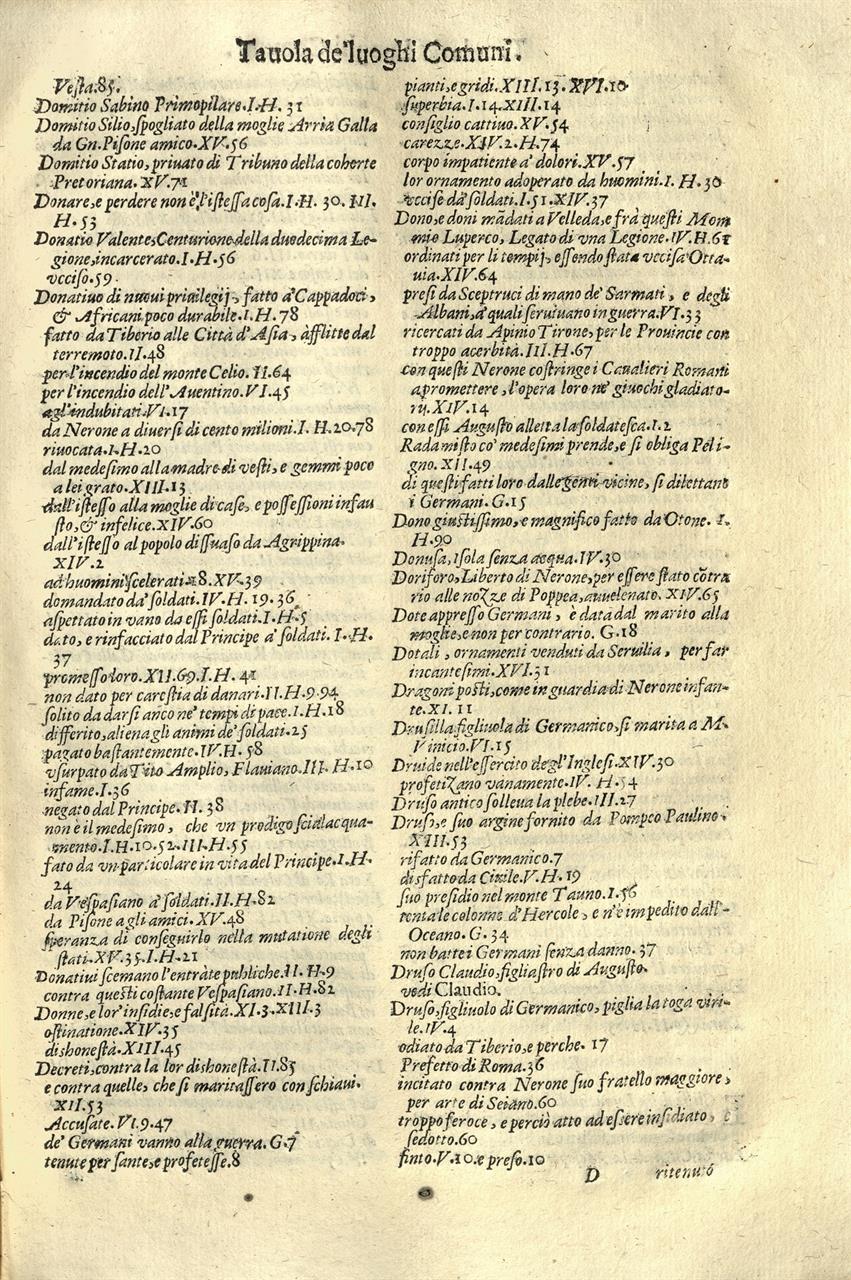 Tauola de' luoghi Comuni.
Vesta.85.
Domitio Sabino Primopilare.I.H. 31
Domitio Silio, spogliato della moglie Arria Galla
da Gn. Pisone amico. XV.56
Domitio Statio, priuato di Tribuno della cohorte
Pretoriana. XV.71
Donare, e perdere non è l'istessa cosa.I.H. 30. III.
H. 53
Donatio Valente, Centurione della duodecima Le-
gione, incarcerato.I.H.56
vcciso.59.
Donatiuo di nuoui priuilegij, fatto a' Cappadoci,
& Africani poco durabile.I.H.78
fatto da Tiberio alle Città d'Asia, afflitte dal
terremoto.II.48
per l'incendio del monte Celio. II.64
per l'incendio dell'Auentino.VI.45
agl'indubitati.VI.17
da Nerone a diuersi di cento milioni.I. H.20.78
riuocata.I.H.20
dal medesimo alla madre di vesti, e gemmi poco
a lei grato. XIII.13
dall'istesso alla moglie di case, e possessioni infau
sto, & infelice.XIV.60
dall'istesso al popolo dissuaso da Agrippina.
XIV.2
ad huomini scelerati.28.XV.39
domandato da' soldati.IV.H. 19.36
aspettato in vano da essi soldati.I.H.5
dato, e rinfacciato dal Principe a' soldati. I.H.
37
promesso loro.XII.69.I.H. 41
non dato per carestia di danari.II.H.9.94
solito da darsi anco ne' tempi di pace.I.H.18
differito, aliena gli animi de' soldati.25
pagato bastantemente.IV.H. 58
vsurpato da Tito Amplio, Flauiano.III. H.10
infame.I.36
negato dal Principe. II. 38
non è il medesimo, che vn prodigo scialacqua-
mento.I.H.10.52.III.H.55
fato da vn particolare in vita del Principe.I.H.
24
da Vespasiano a' soldati.II.H.82
da Pisone agli amici. XV.48
speranza di conseguirlo nella mutatione degli
stati.XV.35.I.H.21
Donatiui scemano l'entrate publiche.II. H.9
contra questi costante Vespasiano.II.H.82
Donne, e lor' insidie, e falsità. XI.3.XIII.3
ostinatione.XIV.35
dishonestà.XIII.45
Decreti, contra la lor dishonestà.II.85
e contra quelle, che si maritassero con schiaui.
XII.53
Accusate. VI.9.47
de' Germani vanno alla guerra. G.7
tenute per sante, e profetesse.8
pianti, e gridi.XIII.13. XVI.10
superbia.I.14.XIII.14
consiglio cattiuo.XV.54
carezze.XIV.2.H.74
corpo impatiente a' dolori.XV.57
lor ornamento adoperato da huomini.I. H.30
vccise da' soldati.I.51.XIV.37
Dono, e doni mãdati a Velleda, e frà questi Mom
mio Luperco, Legato di vna Legione.IV.H.61
ordinati per li tempij, essendo stata vccisa Otta-
uia.XIV.64
presi da Sceptruci di mano de' Sarmati, e degli
Albani, a' quali seruiuano in guerra.VI.33
ricercati da Apinio Tirone, per le Prouincie con
troppo acerbità.III.H.67
con questi Nerone costringe i Caualieri Romani
a promettere, l'opera loro ne' giuochi gladiato-
rij. XIV.14
con essi Augusto alletta la soldatesca.I.2
Radamisto co' medesimi prende, e si obliga Peli-
gno. XII.49
di questi fatti loro dalle genti vicine, si dilettano
i Germani.G.15
Dono giustissimo, e magnifico fatto da Otone. I.
H.90
Donusa, Isola senza acqua.IV.30
Doriforo, Liberto di Nerone, per essere stato cõtra
rio alle nozze di Poppea, auuelenato. XIV.65
Dote appresso Germani, è data dal marito alla
moglie, e non per contrario. G.18
Dotali, ornamenti venduti da Seruilia, per far
incantesimi.XVI.31
Dragoni posti, come in guardia di Nerone infan-
te. XI. 11
Drusilla figliuola di Germanico, si marita a M.
Vinicio. VI.15
Druide nell'essercito degl'Inglesi.XIV.30
profetizano vanamente.IV. H.54
Druso antico solleua la plebe.III.27
Druso, e suo argine fornito da Pompeo Paulino.
XIII.53
rifatto da Germanico.7
disfatto da Ciuile.V.H.19
suo presidio nel monte Tauno.I.56
tenta le colonne d'Hercole, e n'è impedito dall'
Oceano. G. 34
non batte i Germani senza danno. 37
Druso Claudio, figliastro di Augusto.
vedi Claudio.
Druso, figliuolo di Germanico, piglia la toga viri-
le.IV.4
odiato da Tiberio, e perche. 17
Prefetto di Roma.36
incitato contra Nerone suo fratello maggiore,
per arte di Seiano.60
troppo feroce, e perciò atto ad essere insidiato, e
sedotto.60
finto.V.10.e preso.10
D
ritenuto